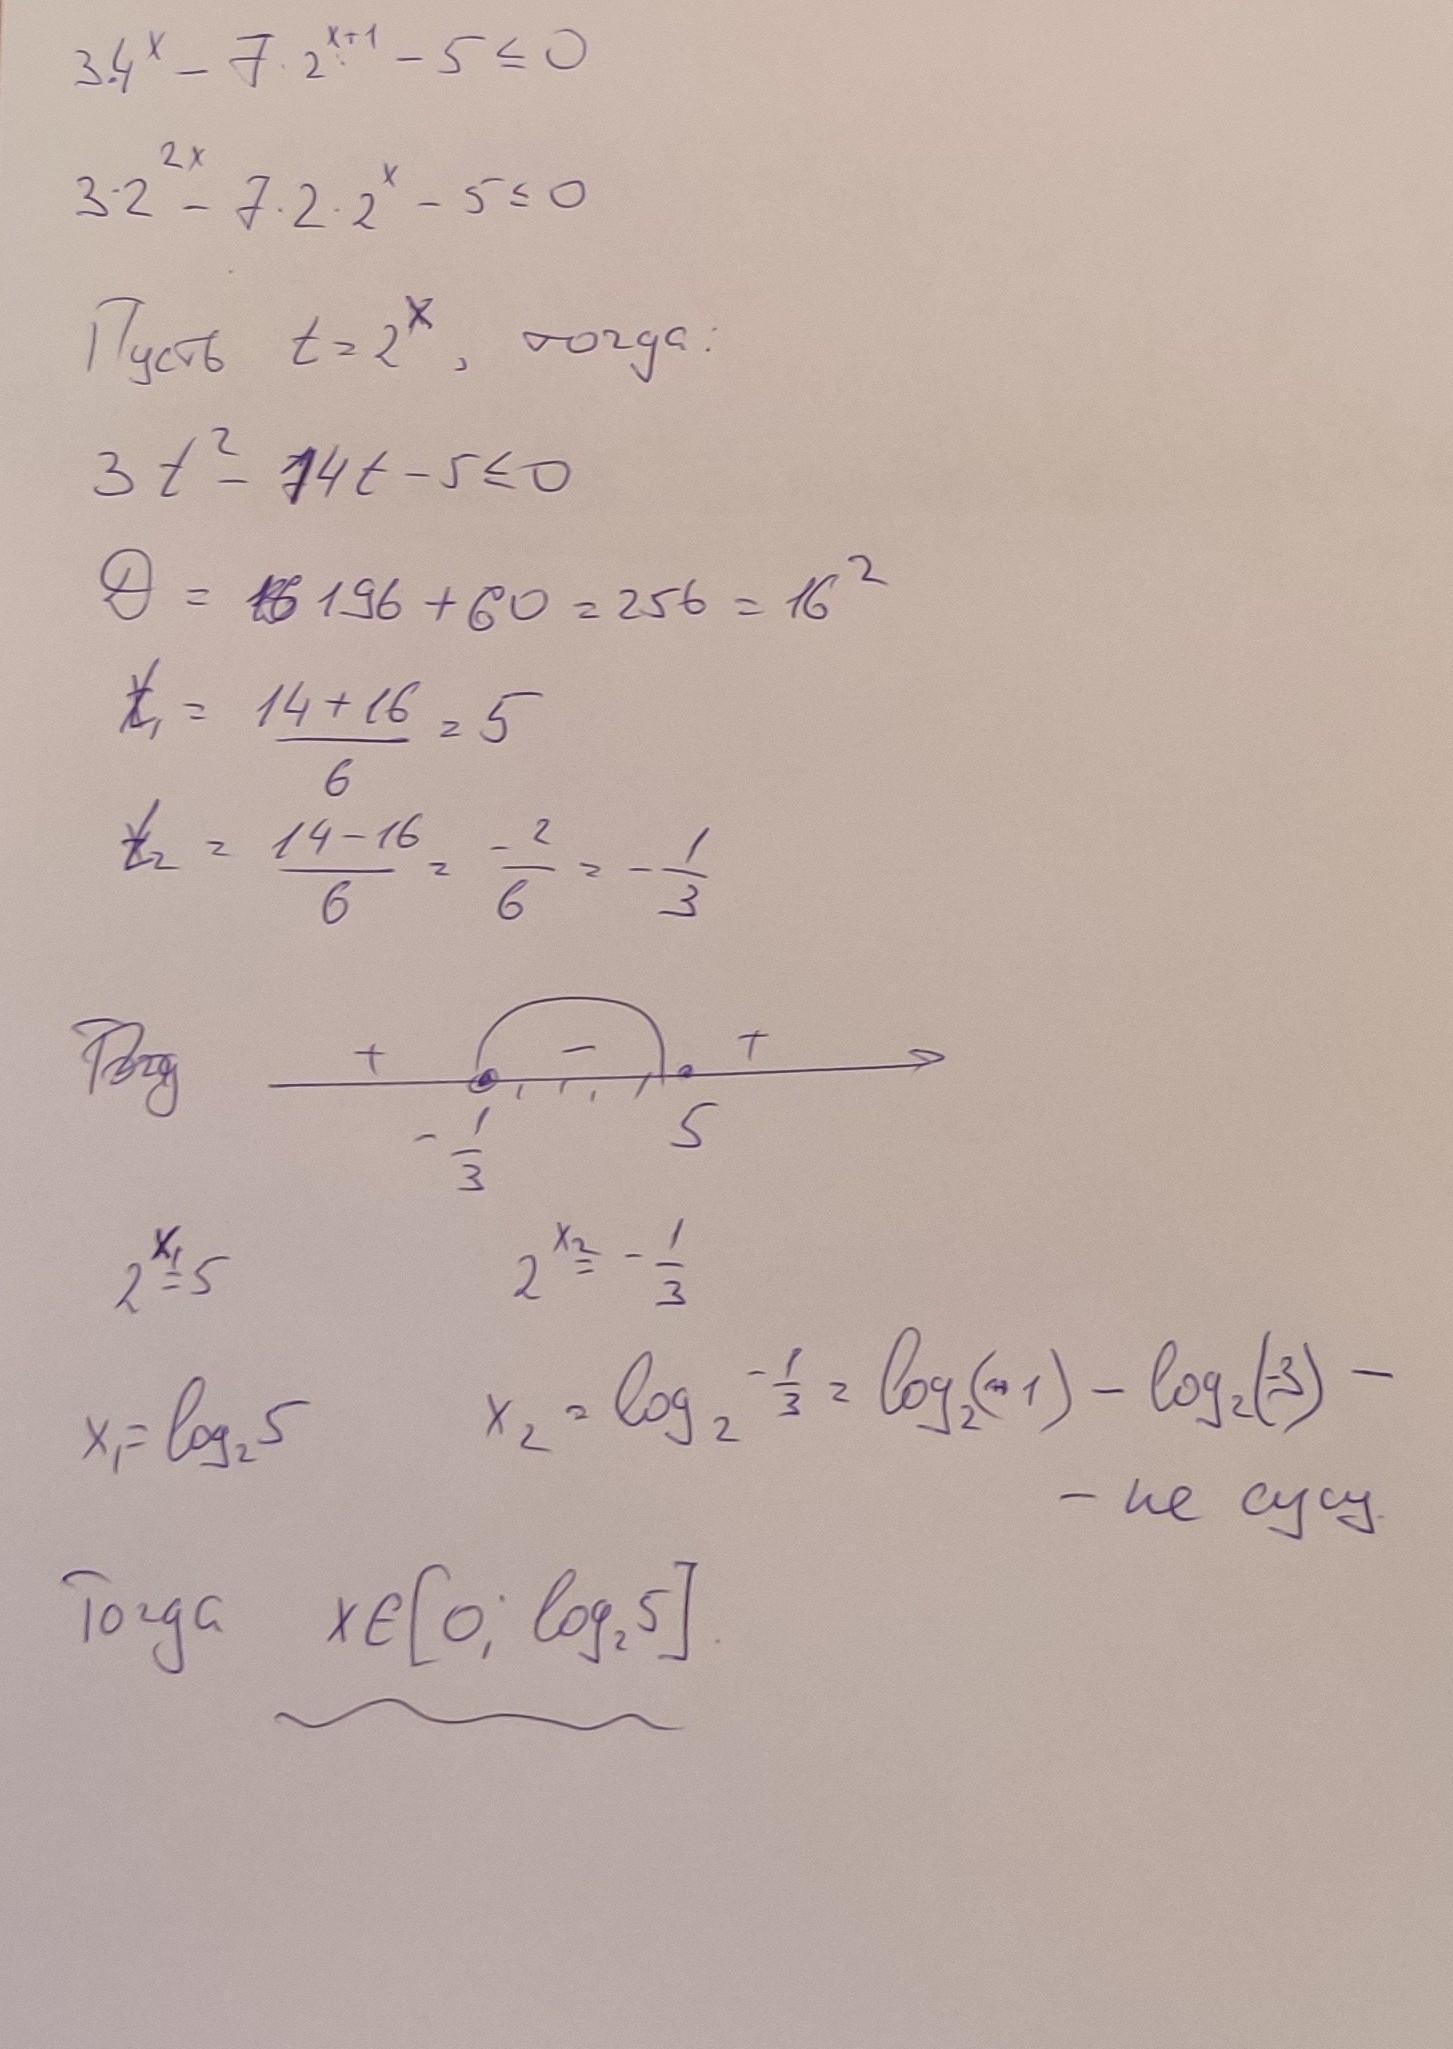 3·4^x − 7·2^{x+1} − 5 ≤ 0
3·2^{2x} − 7·2·2^x − 5 ≤ 0
Пусть t = 2^x, тогда:
3t^2 − 14t − 5 ≤ 0
D = 196 + 60 = 256 = 16^2
t₁ = (14+16)/6 = 5
t₂ = (14−16)/6 = −2/6 = −1/3
+ − +
−1/3 5
2^{x₁} = 5 2^{x₂} = −1/3
x₁ = log₂5 x₂ = log₂ −1/3 = log₂(−1) − log₂(3) −
− не сущ.
Тогда x∈[0; log₂5].